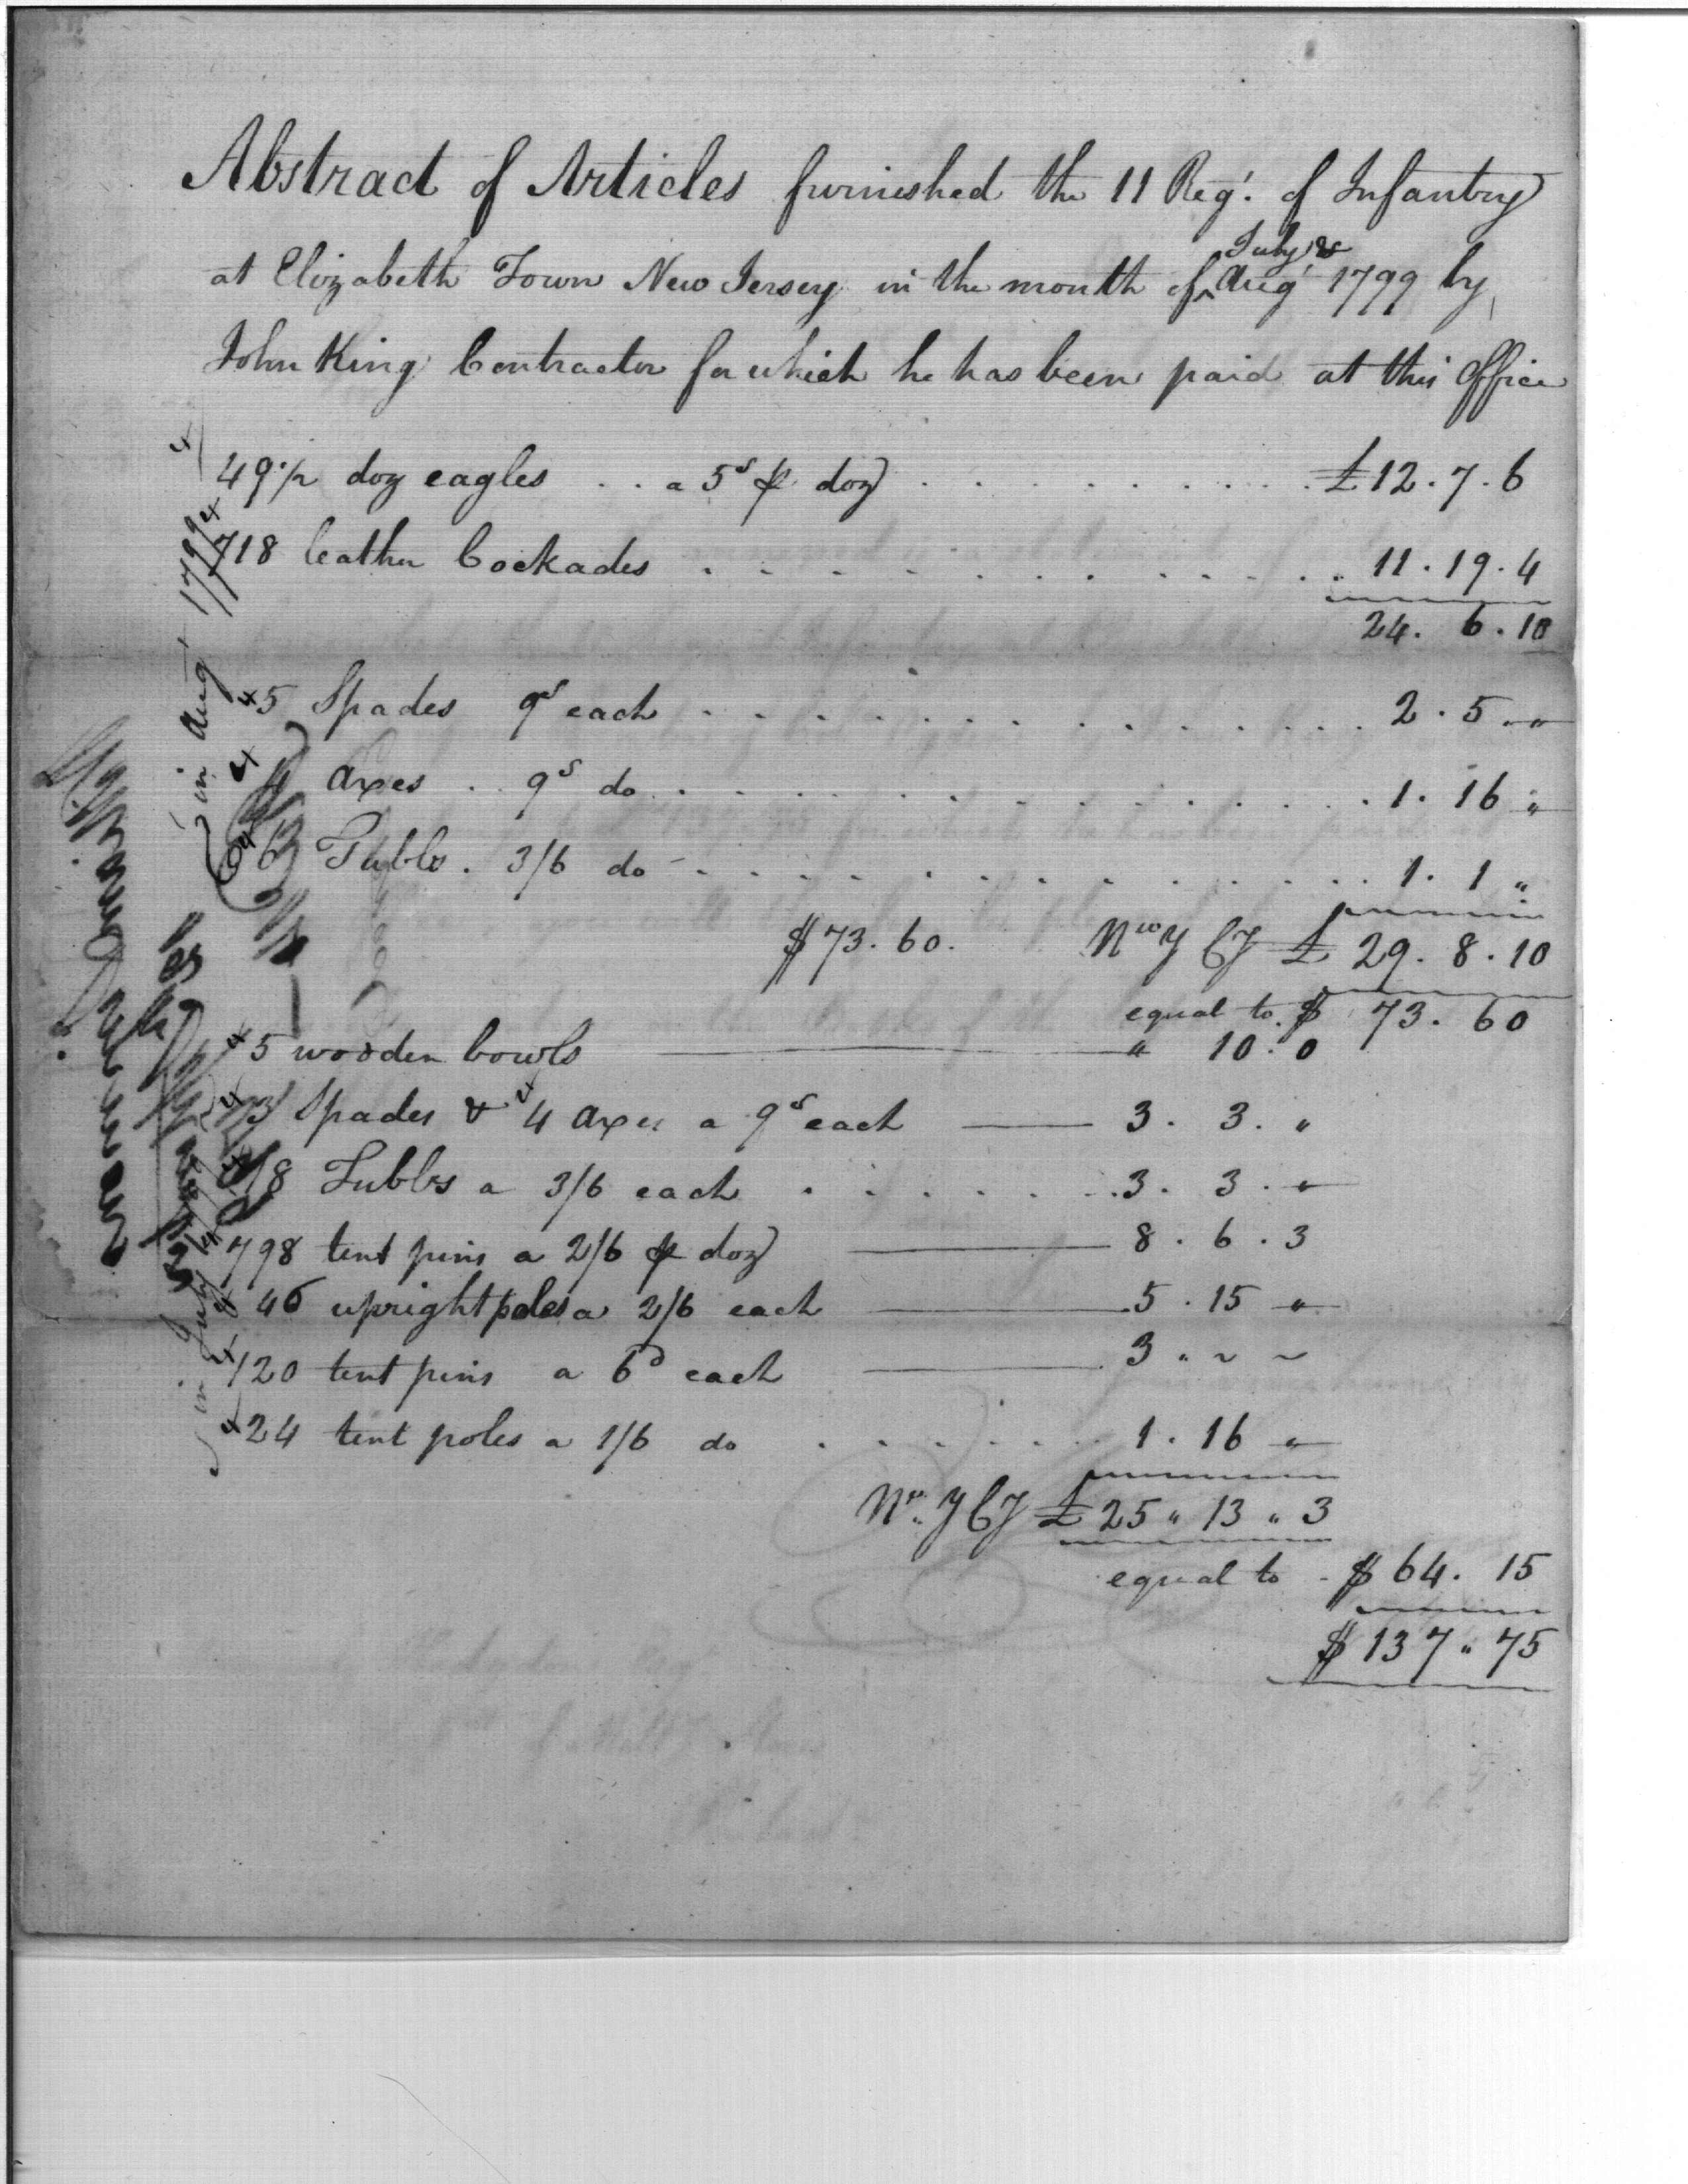 Abstract of Articles furnished the 11 Regt. of Infantry
at Elizabeth Town New Jersey in the month of ^ July & Augt 1799 by
John King Contractor for which he has been paid at this Office
49 1/2 doz eagles . . a 5s ⅌ doz . . . . . . . . . £12.7.6
718 leather Cockades . . . . . . . . . . . 11.19.4
24. 6.10
5 Spades 9s each . . . . . . . . . . . 2.5.〃
4 axes . . 9s do . . . . . . . . . . . 1.16 〃
6 Tubbs . 3/6 do - . . . . . . . . . . 1.1 〃
$73.60. Nw Y Cy £ 29.8.10
equal to $ 73.60
5 wooden bowls 〃 10.0
3 Spades & 4 axes a 9s each 3. 3. 〃
18 Tubbs a 3/6 each . . . . . . . 3. 3. 〃
798 tent pins a 2/6 ⅌ doz 8.6.3
46 upright poles a 2/6 each 5.15 〃
120 tent pins a 6d each 3 〃 ~ ~
24 tent poles a 1/6 do . . . . . . 1.16 〃
Nw. Y Cy £ 25 〃 13 〃 3
equal to $ 64. 15
$ 137 〃 75
in Augt 1799
in July